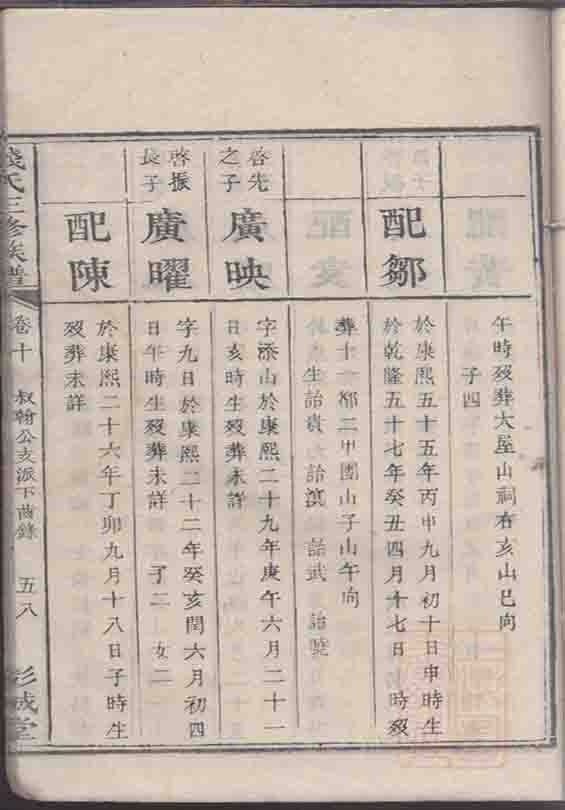 午時歿葬大屋山祠右亥山巳向
子四
配鄒
於康熙五十五年丙申九月初十日申時生
於乾隆五十七年癸丑四月十七日 時歿
葬十一都二甲團山子山午向
生詒貴 詒濱 詒武 詒
啓先之子
廣映
字添山於康熙二十九年庚午六月二十一
日亥時生歿葬未詳
啓振長子
廣曜
字九日於康熙二十二年癸亥閏六月初四
日午時生歿葬未詳 子二 女二
配陳
於康熙二十六年丁卯九月十八日子時生
歿葬未詳
錢氏三修族譜
卷十
叔翰公支派下齒錄
五八
彭城堂